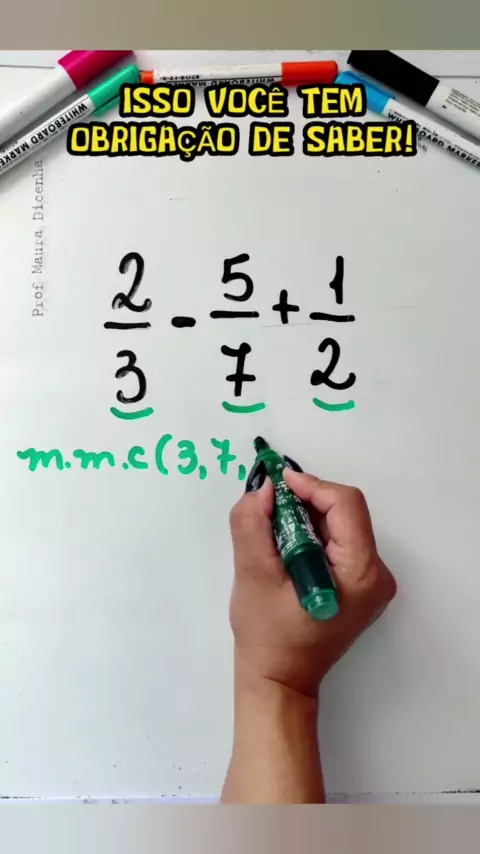 ISSO VOCÊ TEM
OBRIGAÇÃO DE SABER!
Prof Maura Dicenha
WHITEBOARD MARKER
WHITEBOARD MARKER
2/3 - 5/7 + 1/2
m.m.c (3, 7,